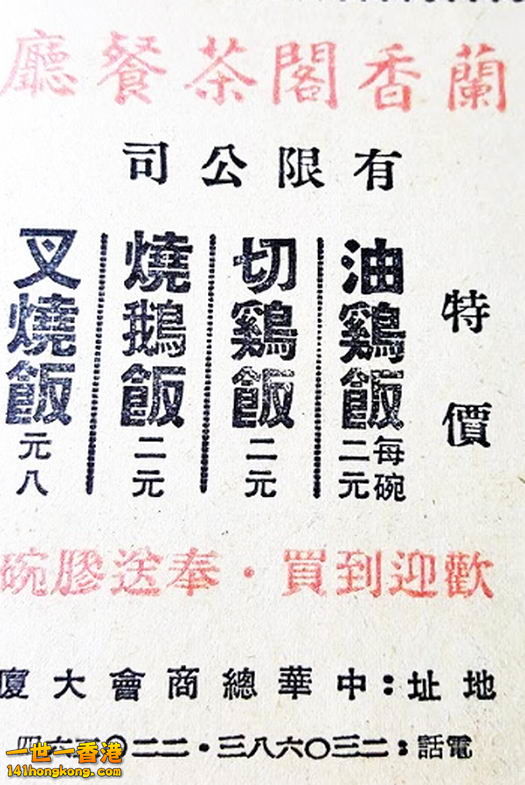 蘭香閣茶餐廳
有限公司
特價
油鷄飯 每碗二元
切鷄飯 二元
燒鵝飯 二元
叉燒飯 元八
歡迎到買・奉送膠碗
地址：中華總商會大廈
電話：二三〇六八三・二二〇六四
一世一香港
141hongkong.com